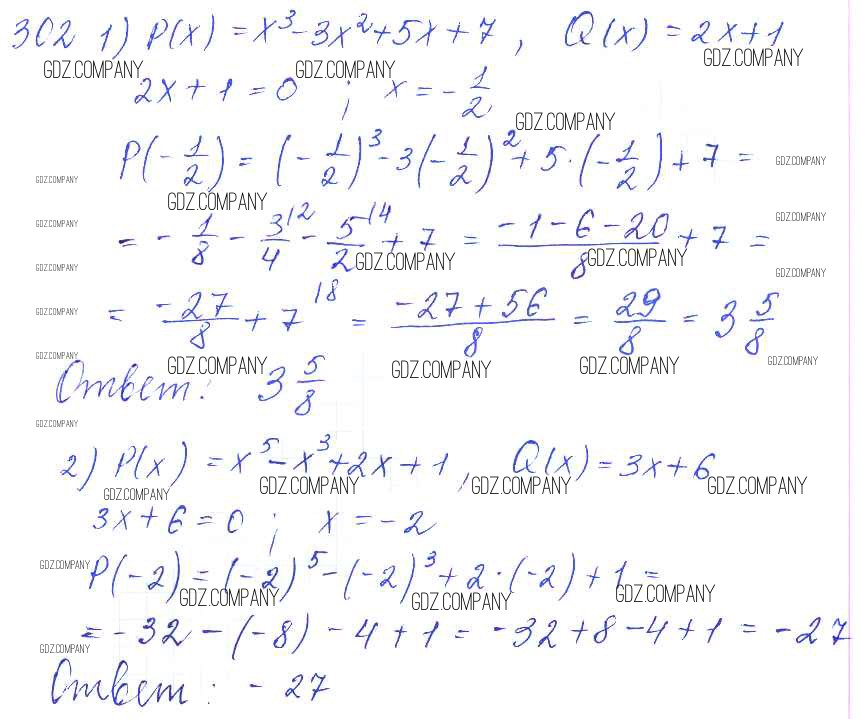 302 1) P(x) = x³ - 3x² + 5x + 7 , Q(x) = 2x + 1
GDZ.COMPANY GDZ.COMPANY GDZ.COMPANY
2x + 1 = 0 ; x = - 1/2
GDZ.COMPANY
P(- 1/2) = (- 1/2)³ - 3(- 1/2)² + 5·(- 1/2) + 7 =
GDZ.COMPANY
GDZ.COMPANY GDZ.COMPANY
GDZ.COMPANY GDZ.COMPANY
= - 1/8 - 3/4 \2 - 5/2 \4 + 7 = (-1 - 6 - 20)/8 + 7 =
GDZ.COMPANY GDZ.COMPANY GDZ.COMPANY GDZ.COMPANY
GDZ.COMPANY
= -27/8 + 7 \8 = (-27 + 56)/8 = 29/8 = 3 5/8
GDZ.COMPANY GDZ.COMPANY GDZ.COMPANY GDZ.COMPANY GDZ.COMPANY
Ответ: 3 5/8
GDZ.COMPANY
2) P(x) = x⁵ - x³ + 2x + 1 , Q(x) = 3x + 6
GDZ.COMPANY GDZ.COMPANY GDZ.COMPANY GDZ.COMPANY
3x + 6 = 0 ; x = -2
GDZ.COMPANY
P(-2) = (-2)⁵ - (-2)³ + 2·(-2) + 1 =
GDZ.COMPANY GDZ.COMPANY GDZ.COMPANY
= -32 - (-8) - 4 + 1 = -32 + 8 - 4 + 1 = -27
GDZ.COMPANY
Ответ: - 27